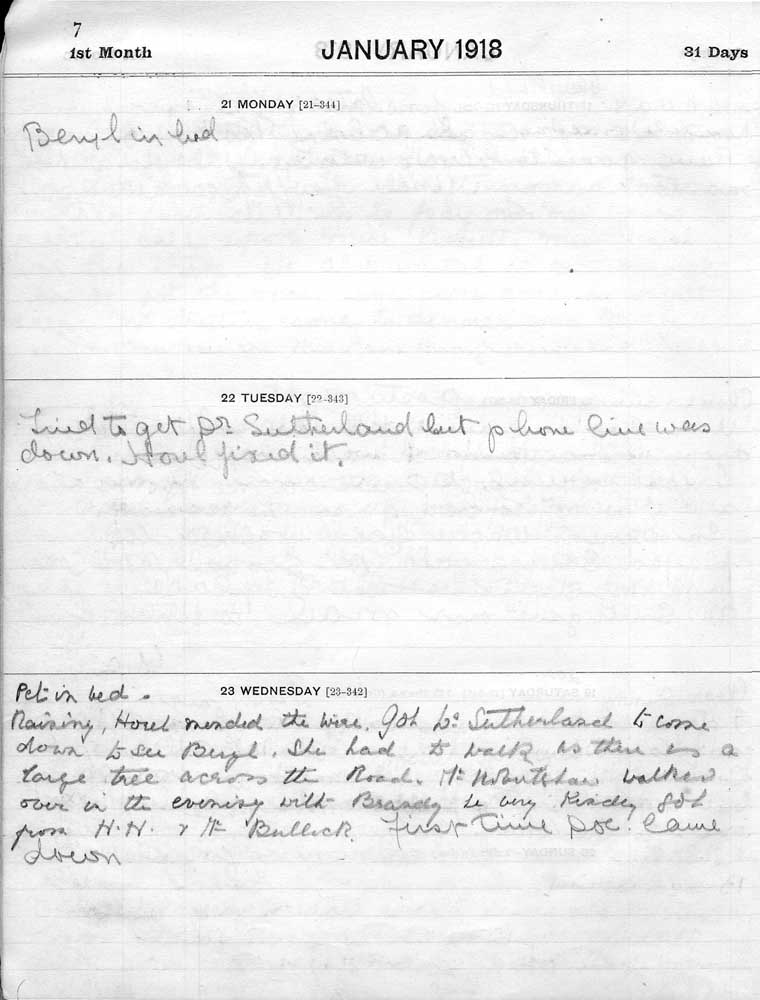 7
1st Month
JANUARY 1918
31 Days
21 MONDAY [21-344]
Beryl in bed
22 TUESDAY [22-343]
Tried to get Dr. Sutherland but phone line was
down. Horel fixed it.
23 WEDNESDAY [23-342]
Pet in bed.
Raining, Horel mended the wire. Got Dr Sutherland to come
down to see Beryl. She had to walk as there is a
large tree across the Road. Mr walked
over in the evening with Brandy he very Kindly got
from H.H. & Mr Bullock. First time Doc. came
down